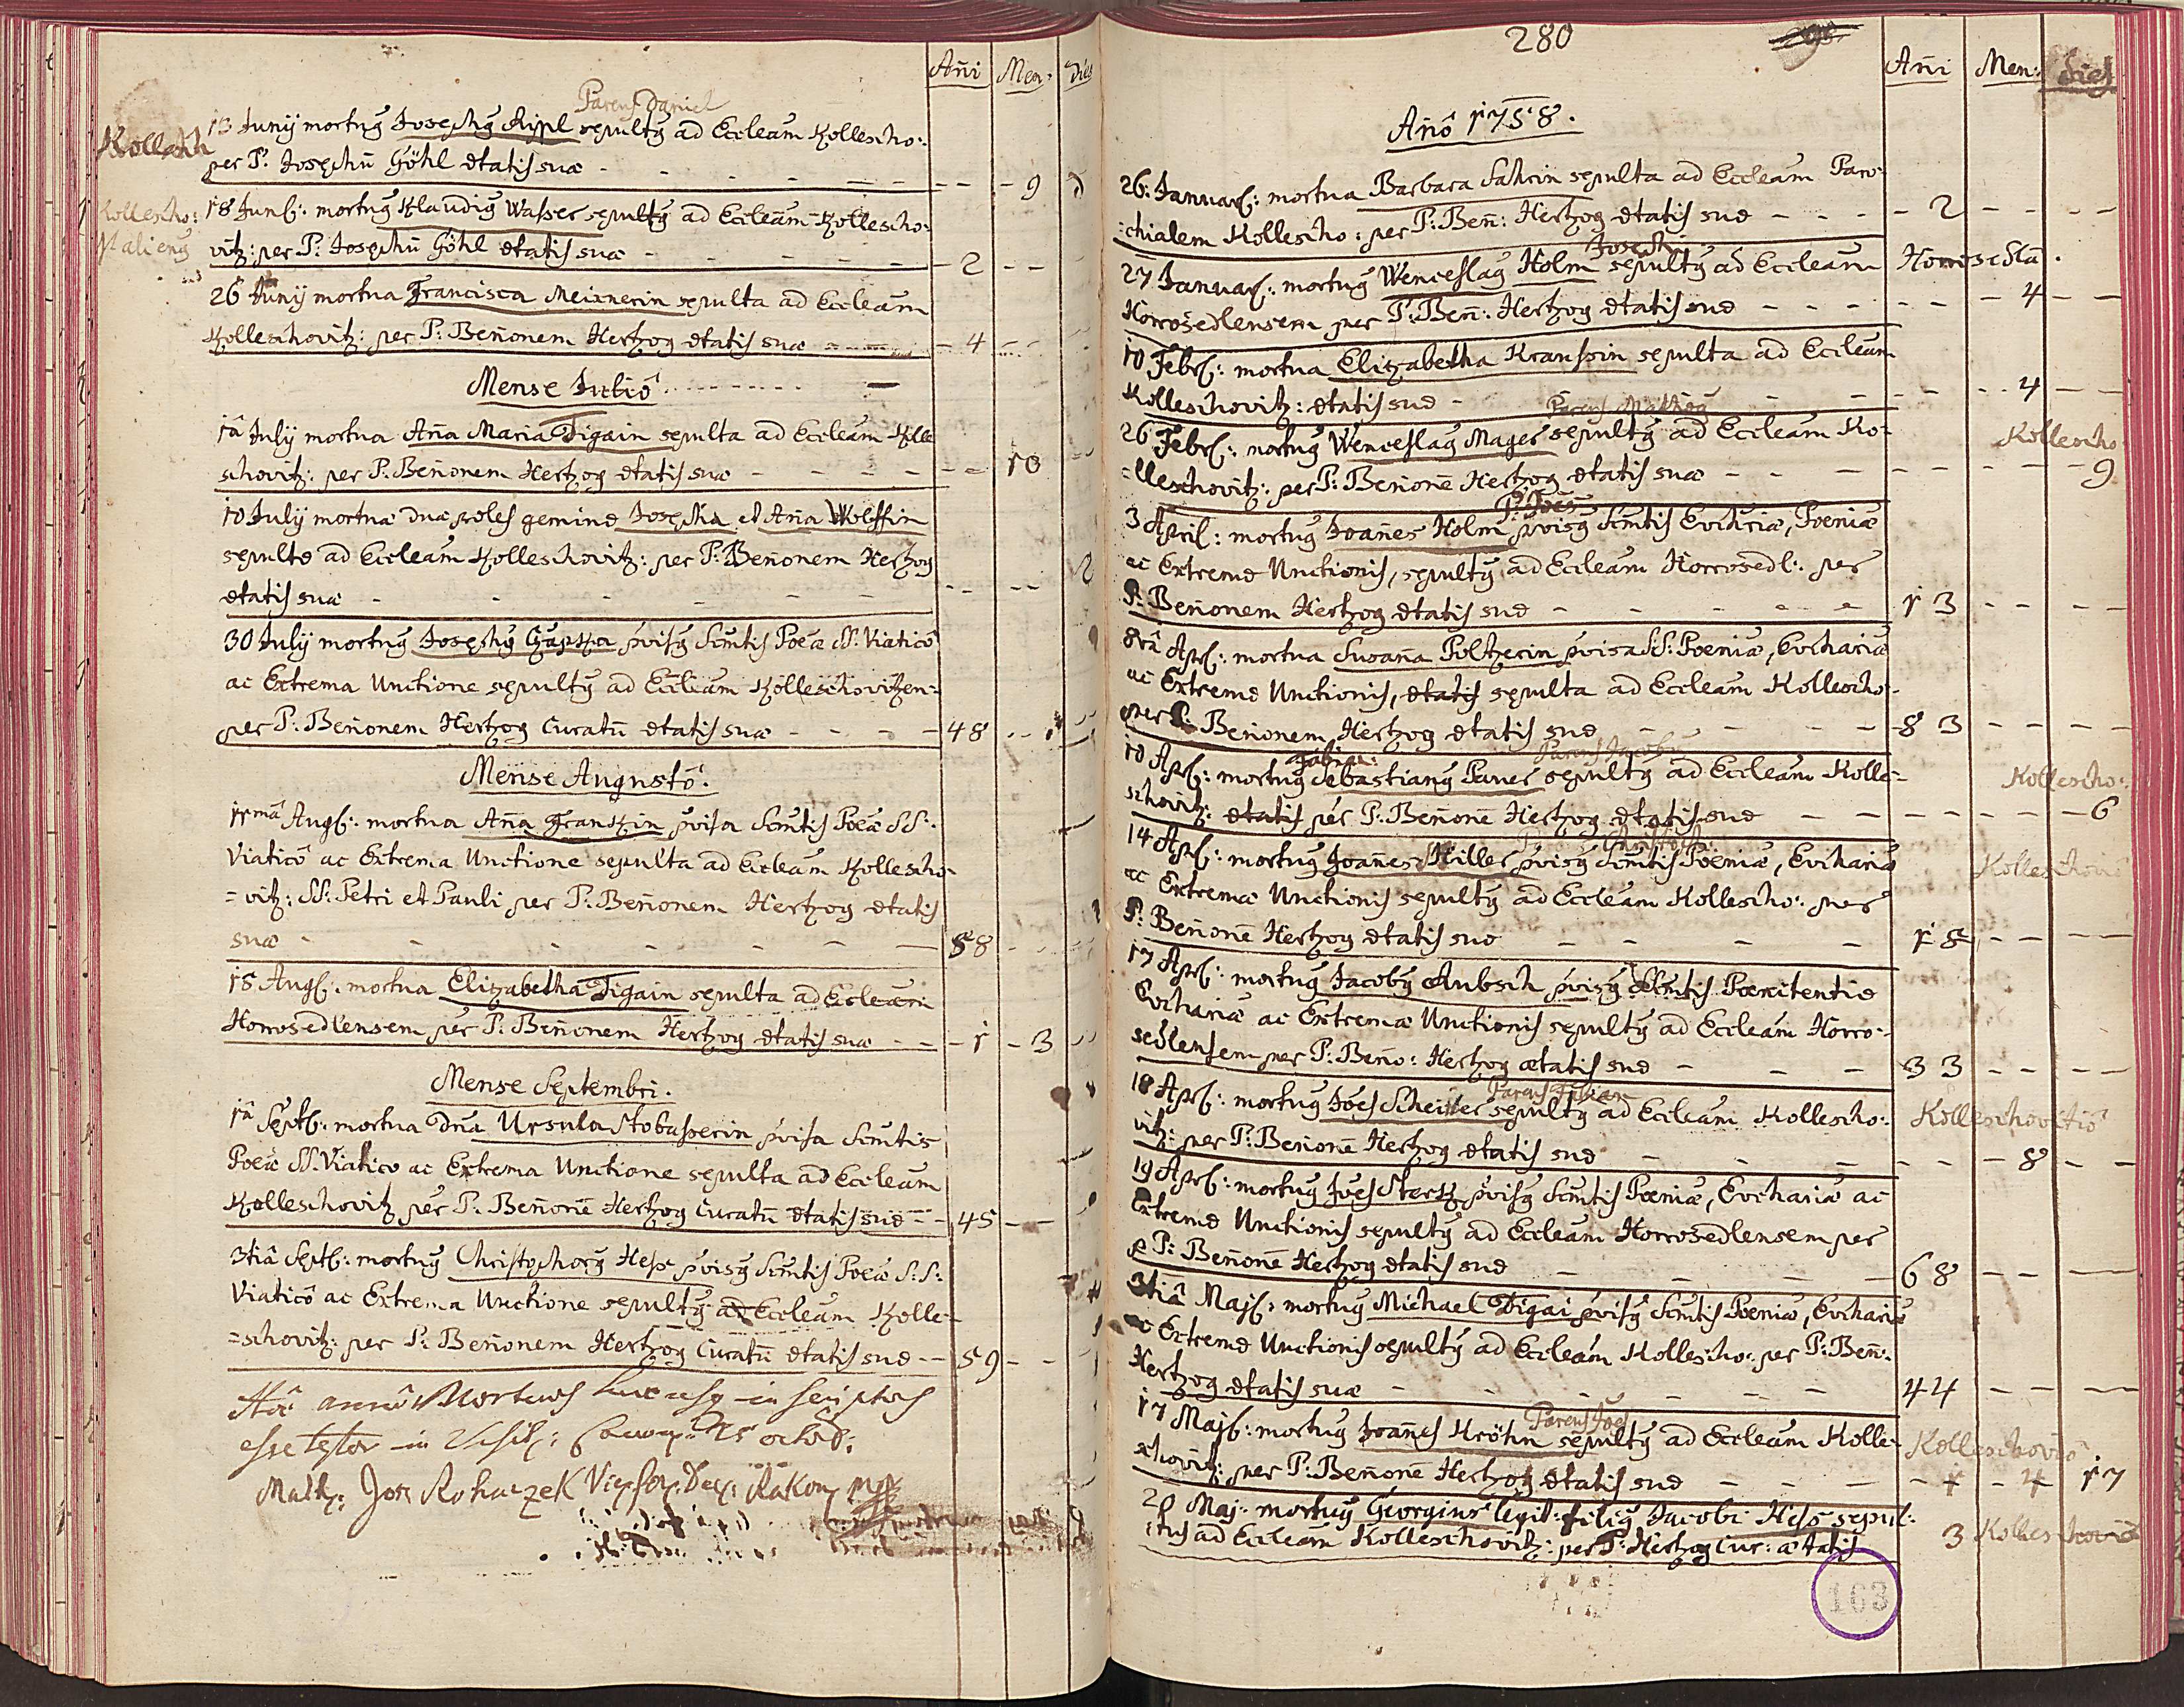 Añi Men: dies
Parens Daniel
Kollesch
13 Junij mortug Josephg Rippl sepultg ad Eccleam Kollescho:
per P: Josephū Göhl ætatis suæ - - - - - - - 9 d
Kollescho:
18 Junl: mortug Klaudig Wasser sepultg ad Eccleam Kollescho:
vitz: per P: Josephū Göhl ætatis suæ - - - - 2 - -
26 Junij mortua Francisca Meixnerin sepulta ad Eccleam
Kolleschovitz: per P: Beñonem Hertzog ætatis suæ - - - 4 - -
Mense Julio
1â July mortua Aña Maria Tigain sepulta ad Eccleam Kolle
schovitz: per P: Beñonem Hertzog ætatis suæ - - - - - - 10
10 July mortuæ duæ proles geminæ Josepha et Aña Wolffin
sepultæ ad Eccleam Kolleschovitz: per P: Beñonem Hertzog
ætatis suæ - - - - - - - - 2
30 July mortug Josephg Czapka pvisg Scmtis Poeæ SS. Viaticô
ac Extrema Unctione sepultg ad Eccleam Kolleschovitzen=
per P: Beñonem Hertzog Curatū ætatis suæ - - - - 48
Mense Augustô.
11mâ Augl: mortua Aña Frantzin pvisa Scmtis Poeæ SS.
Viaticô ac Extrema Unctione sepulta ad Eccleam Kollescho=
=vitz: SS: Petri et Pauli per P: Beñonem Hertzog ætatis
suæ - - - - - - - 58
15 Augl: mortua Elizabetha Tigain sepulta ad Eccleam
Horrosedlensem per P: Beñonem Hertzog ætatis suæ - - - 1 - 3
Mense Septembri.
1â Septl: mortua Dña Ursula Stobasserin pvisa Scmtis
Poeæ SS. Viatico ac Extrema Unctione sepulta ad Eccleam
Kolleschovitz per P: Beñonē Hertzog Curatū ætatis suæ - - 45
3tiâ Septl: mortug Christophorg Hess pvisg Scmtis Poeæ S:S:
Viaticô ac Extrema Unctione sepultg ad Eccleam Kolle=
=schovitz: per P: Beñonem Hertzog Curatū ætatis suæ - - 59
Hôc annô Mortuos hucusq in scriptos
esse testor in Visit: 25 octob:
Math: Jos Rohaczek Rakon mp
280
Añi Men: dies
Añô 1758.
26: Januarl: mortua Barbara Sahrin sepulta ad Eccleam Paro=
=chialem Kollescho: per P: Beñ: Hertzog ætatis suæ - - - - 2 - - -
Joseph
27 Januarl: mortug Wenceslag Holm sepultg ad Eccleam
Horrosedlensem per P: Beñ: Hertzog ætatis suæ - - - - - 4 - -
10 Febrl: mortua Elizabetha Kraussin sepulta ad Eccleam
Kolleschovitz: ætatis suæ - - - - - 4 - -
Parens Mathias
26 Febrl: mortug Wenceslag Mager sepultg ad Eccleam Ko= Kollescho
=lleschovitz: per P: Beñonē Hertzog ætatis suæ - - - - - - - 9
P: Joes
3 April: mortug Joañes Holm pvisg Scmtis Evchriæ, Poeniæ
ac Extremæ Unctionis, sepultg ad Eccleam Horrosedl: per
P: Beñonem Hertzog ætatis suæ - - - - - 13 - - -
8vâ Aprl: mortua Susaña Poltzerin pvisa SS: Poeniæ, Evchariæ
ac Extremæ Unctionis, ætatis sepulta ad Eccleam Kollescho=
per P: Beñonem Hertzog ætatis suæ - - - - 83 - - -
Parens Jacob
Fabian:
10 Aprl: mortug Sebastiang Paner sepultg ad Eccleam Kolle= Kollescho:
schovitz: ætatis per P: Beñonē Hertzog ætatis suæ - - - - - - 6
14 Aprl: mortug Joañes Hiller pvisg Scmtis Poeniæ, Evchariæ
ac Extremæ Unctionis sepultg ad Eccleam Kollescho: per
P: Beñonē Hertzog ætatis suæ - - - - 18 - - -
17 Aprl: mortug Jacobg Anbsch pvisg SScmtis Poenitentiæ
Evchariæ ac Extremæ Unctionis sepultg ad Eccleam Horro=
sedlensem per P: Beño: Hertzog ætatis suæ - - - 33 - - -
Parens Fabian
18 Aprl: mortug Joes Scheitler sepultg ad Eccleam Kollescho: Kolleschovitio
vitz: per P: Beñonē Hertzog ætatis suæ - - - - - 8 - -
19 Aprl: mortug Joes Stertz pvisg Scmtis Poeniæ, Evchariæ ac
Extremæ Unctionis sepultg ad Eccleam Horrosedlensem per
P: Beñonē Hertzog ætatis suæ - - - - 68 - - -
3tiâ Majl: mortug Michael Tigai pvisg Scmtis Poeniæ, Evchariæ
ac Extremæ Unctionis sepultg ad Eccleam Kollescho: per P: Beñ:
Hertzog ætatis suæ - - - - - - 44 - - -
Parens Joes
17 Majl: mortug Joañes Kröhn sepultg ad Eccleam Kolle=
schovitz: per P: Beñonē Hertzog ætatis suæ - - - - 1 - 4 17
20 Maj: mortug Georgius legit: filig Jacobi Hess sepul:
tus ad Eccleam Kolleschovitz: per P: Hertzog Cur: ætatis 3
163